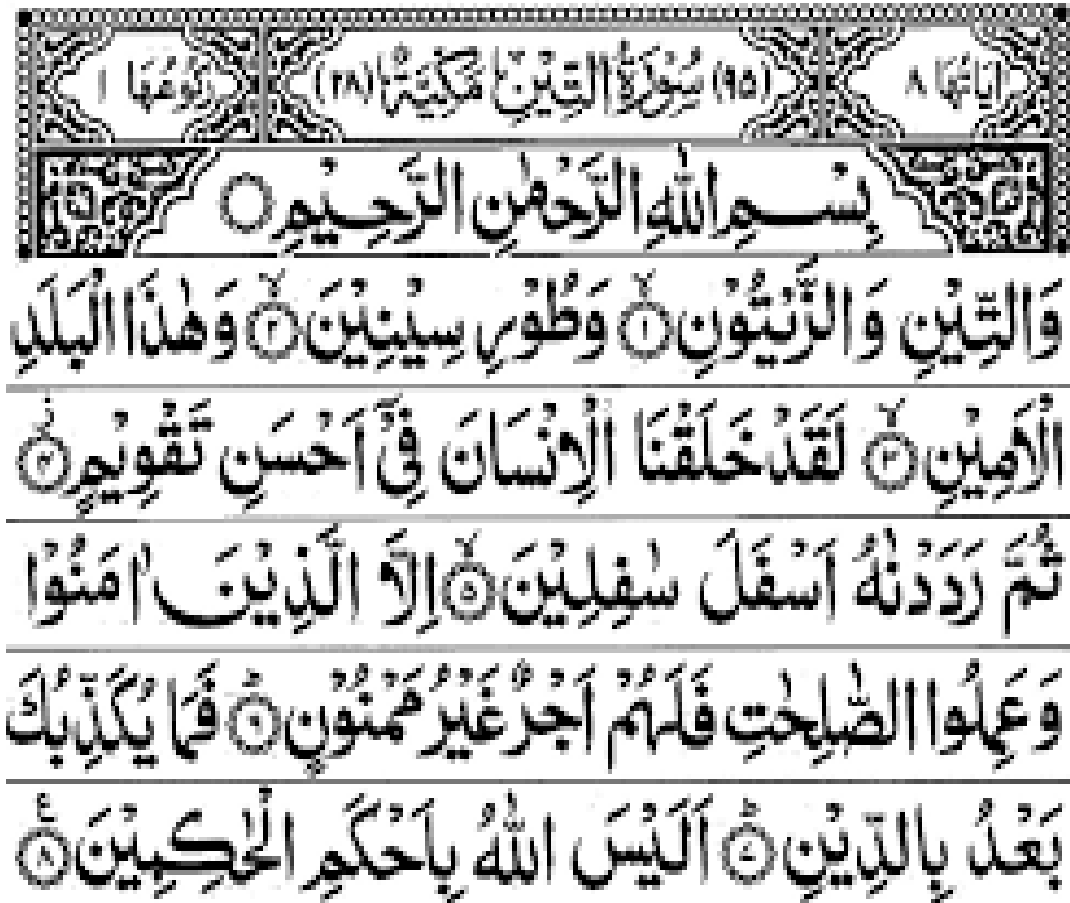 اٰيَاتُهَا ٨ (٩٥) سُوْرَةُ التِّيْنِ مَكِّيَّةٌ (٢٨) رُكُوْعُهَا ١
بِسْمِ اللّٰهِ الرَّحْمٰنِ الرَّحِيْمِ ۝
وَالتِّيْنِ وَالزَّيْتُوْنِ ۝١ۙ وَطُوْرِ سِيْنِيْنَ ۝٢ۙ وَهٰذَا الْبَلَدِ
الْاَمِيْنِ ۝٣ۙ لَقَدْ خَلَقْنَا الْاِنْسَانَ فِيْٓ اَحْسَنِ تَقْوِيْمٍ ۝٤ۡ
ثُمَّ رَدَدْنٰهُ اَسْفَلَ سٰفِلِيْنَ ۝٥ۙ اِلَّا الَّذِيْنَ اٰمَنُوْا
وَعَمِلُوا الصّٰلِحٰتِ فَلَهُمْ اَجْرٌ غَيْرُ مَمْنُوْنٍ ۝٦ؕ فَمَا يُكَذِّبُكَ
بَعْدُ بِالدِّيْنِ ۝٧ؕ اَلَيْسَ اللّٰهُ بِاَحْكَمِ الْحٰكِمِيْنَ ۝٨ع